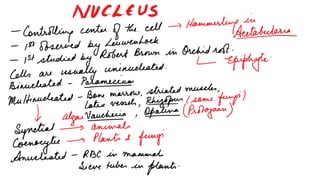 NUCLEUS
- Controlling center of the cell → Hammerling in Acetabularia
- 1st observed by Leuwenhock
- 1st studied by Robert Brown in Orchid root.
→ Epiphyte
Cells are usually uninucleated.
Binucleated - Paramecium
Multinucleated - Bone marrow, striated muscles,
latex vessels, Rhizopus (some fungi)
algae Vaucheria, Opalina (Protozoan)
Syncytial → animals
Coenocytic → Plants & fungi
Anucleated - RBC in mammals
Sieve tubes in plants.